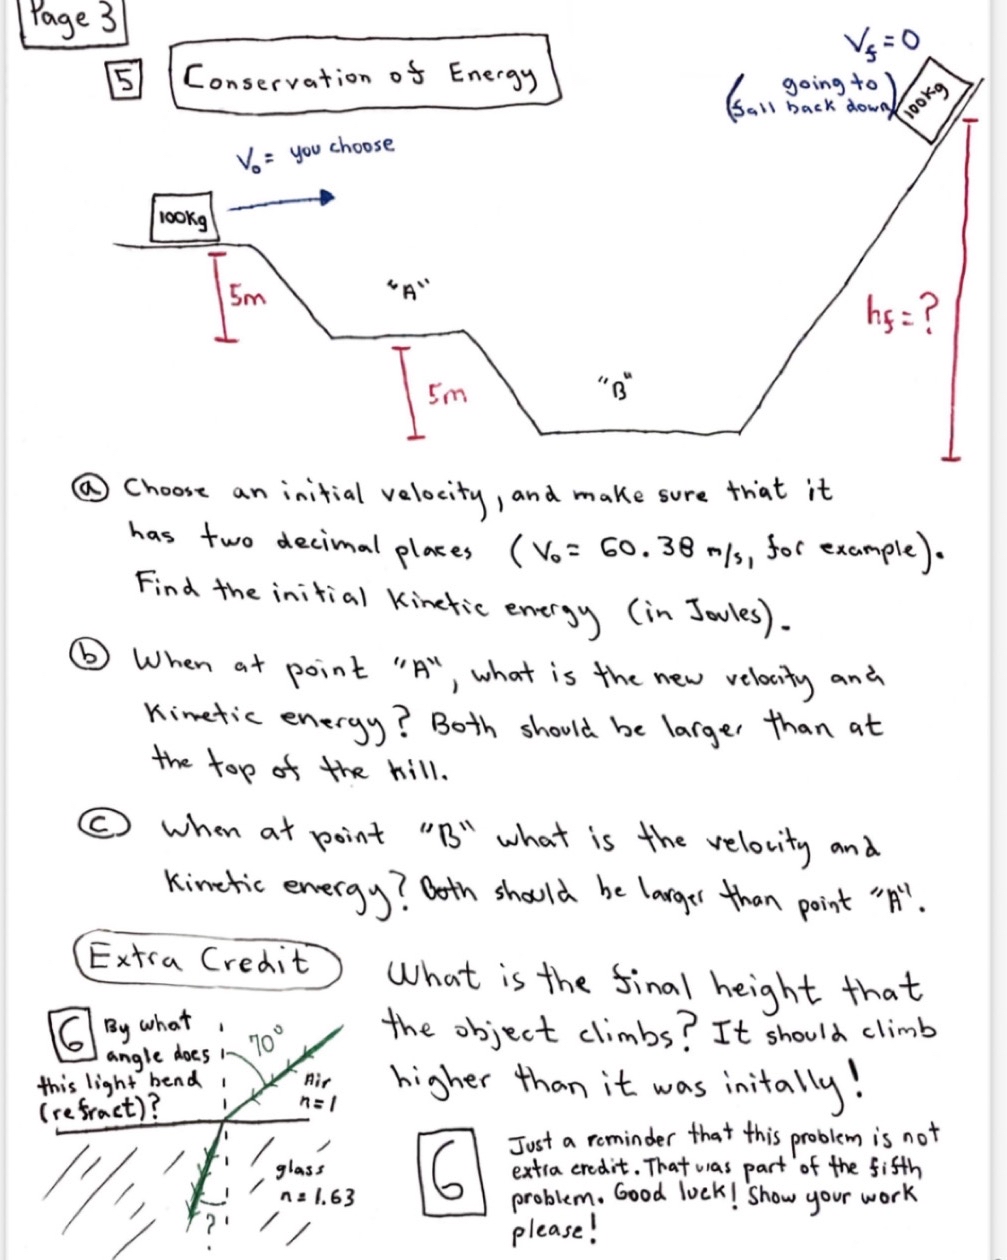 Page 3
5 Conservation of Energy
V₀ = you choose
100Kg
5m
"A"
5m
"B"
V_f = 0
(going to
fall back down)
100Kg
h_f = ?
ⓐ Choose an initial velocity, and make sure that it
has two decimal places (V₀ = 60.38 m/s, for example).
Find the initial Kinetic energy (in Joules).
ⓑ When at point "A", what is the new velocity and
Kinetic energy? Both should be larger than at
the top of the hill.
ⓒ When at point "B" what is the velocity and
Kinetic energy? Both should be larger than point "A".
What is the final height that
the object climbs? It should climb
higher than it was initally!
Extra Credit
6 By what
angle does
this light bend
(refract)?
70°
Air
n=1
glass
n=1.63
?
6 Just a reminder that this problem is not
extra credit. That was part of the fifth
problem. Good luck! Show your work
please!